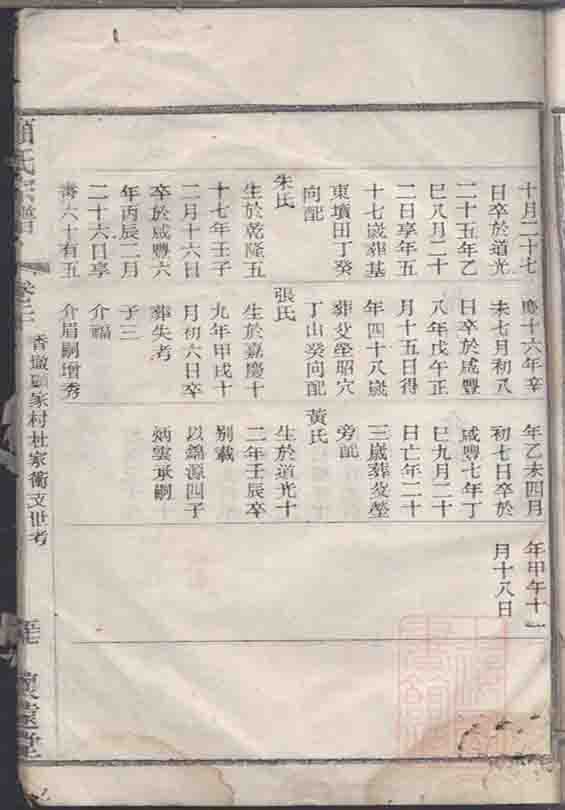 十月二十七
日卒於道光
二十五年乙
巳八月二十
二日享年五
十七歲葬基
東墳田丁癸
向配
朱氏
生於乾隆五
十七年壬子
二月十六日
卒於咸豐六
年丙辰二月
二十六日享
壽六十有五
慶十六年辛
未七月初八
日卒於咸豐
八年戊午正
月十五日得
年四十八歲
葬父塋昭穴
丁山癸向配
張氏
生於嘉慶十
九年甲戌十
月初六日卒
葬失考
子三
介福
介眉嗣增秀
年乙未四月
初七日卒於
咸豐七年丁
巳九月二十
日亡年二十
三歲葬父塋
旁配
黃氏
生於道光十
二年壬辰卒
別載
以錦源四子
炳雲承嗣
年甲午十一
月十八日
顧氏宗譜
顧家村杜家衖支世考
懷遠堂